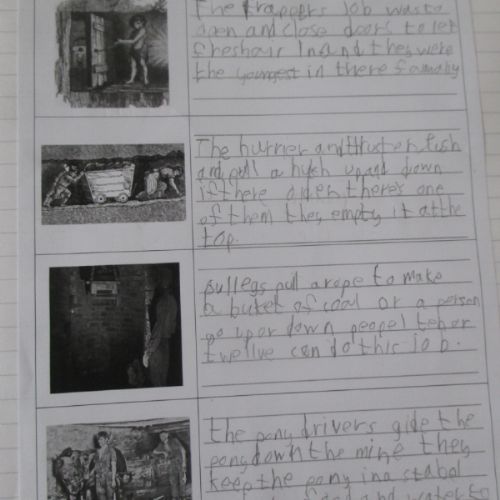 The trappers job was to
open and close doors to let
freshair in and they were
the youngest in there famaby
The hurrier and thruster push
and pull a huch up and down
if there older there's one
of them they empty it at the
top.
pullegs pull a rope to make
a buket of coal or a person
go up or down peopel ten or
twellve can do this job.
the pony drivers gide the
pony down the mine they
keep the pony in a stabal